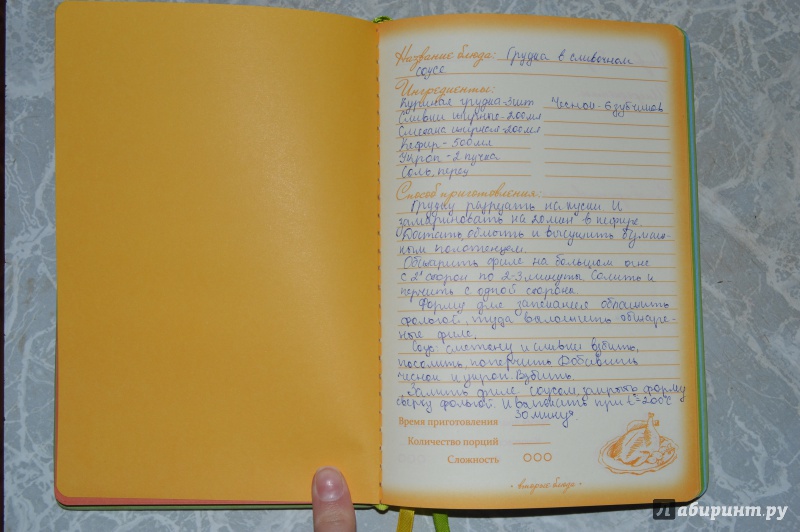 Название блюда: Грудка в сливочном
соусе
Ингредиенты:
Куриная грудка-3шт Чеснок-6зубчиков
Сливки жирные-200мл
Сметана жирная-200мл
Кефир-500мл
Укроп-2 пучка
Соль, перец
Способ приготовления:
Грудку разрезать на куски и
замариновать на 20мин в кефире.
Достать, обмыть и высушить бумаж-
ным полотенцем.
Обжарить филе на большом огне
с 2х сторон по 2-3 минуты. Солить и
перчить с одной стороны.
Форму для запекания обложить
фольгой, туда выложить обжаре-
ные филе.
Соус: сметану и сливки взбить,
посолить, поперчить. Добавить
чеснок и укроп. Взбить.
Залить филе соусом, закрыть форму
сверху фольгой и запекать при t=200°C
30 минут.
Время приготовления
Количество порций
Сложность
вторые блюда
Лабиринт.ру